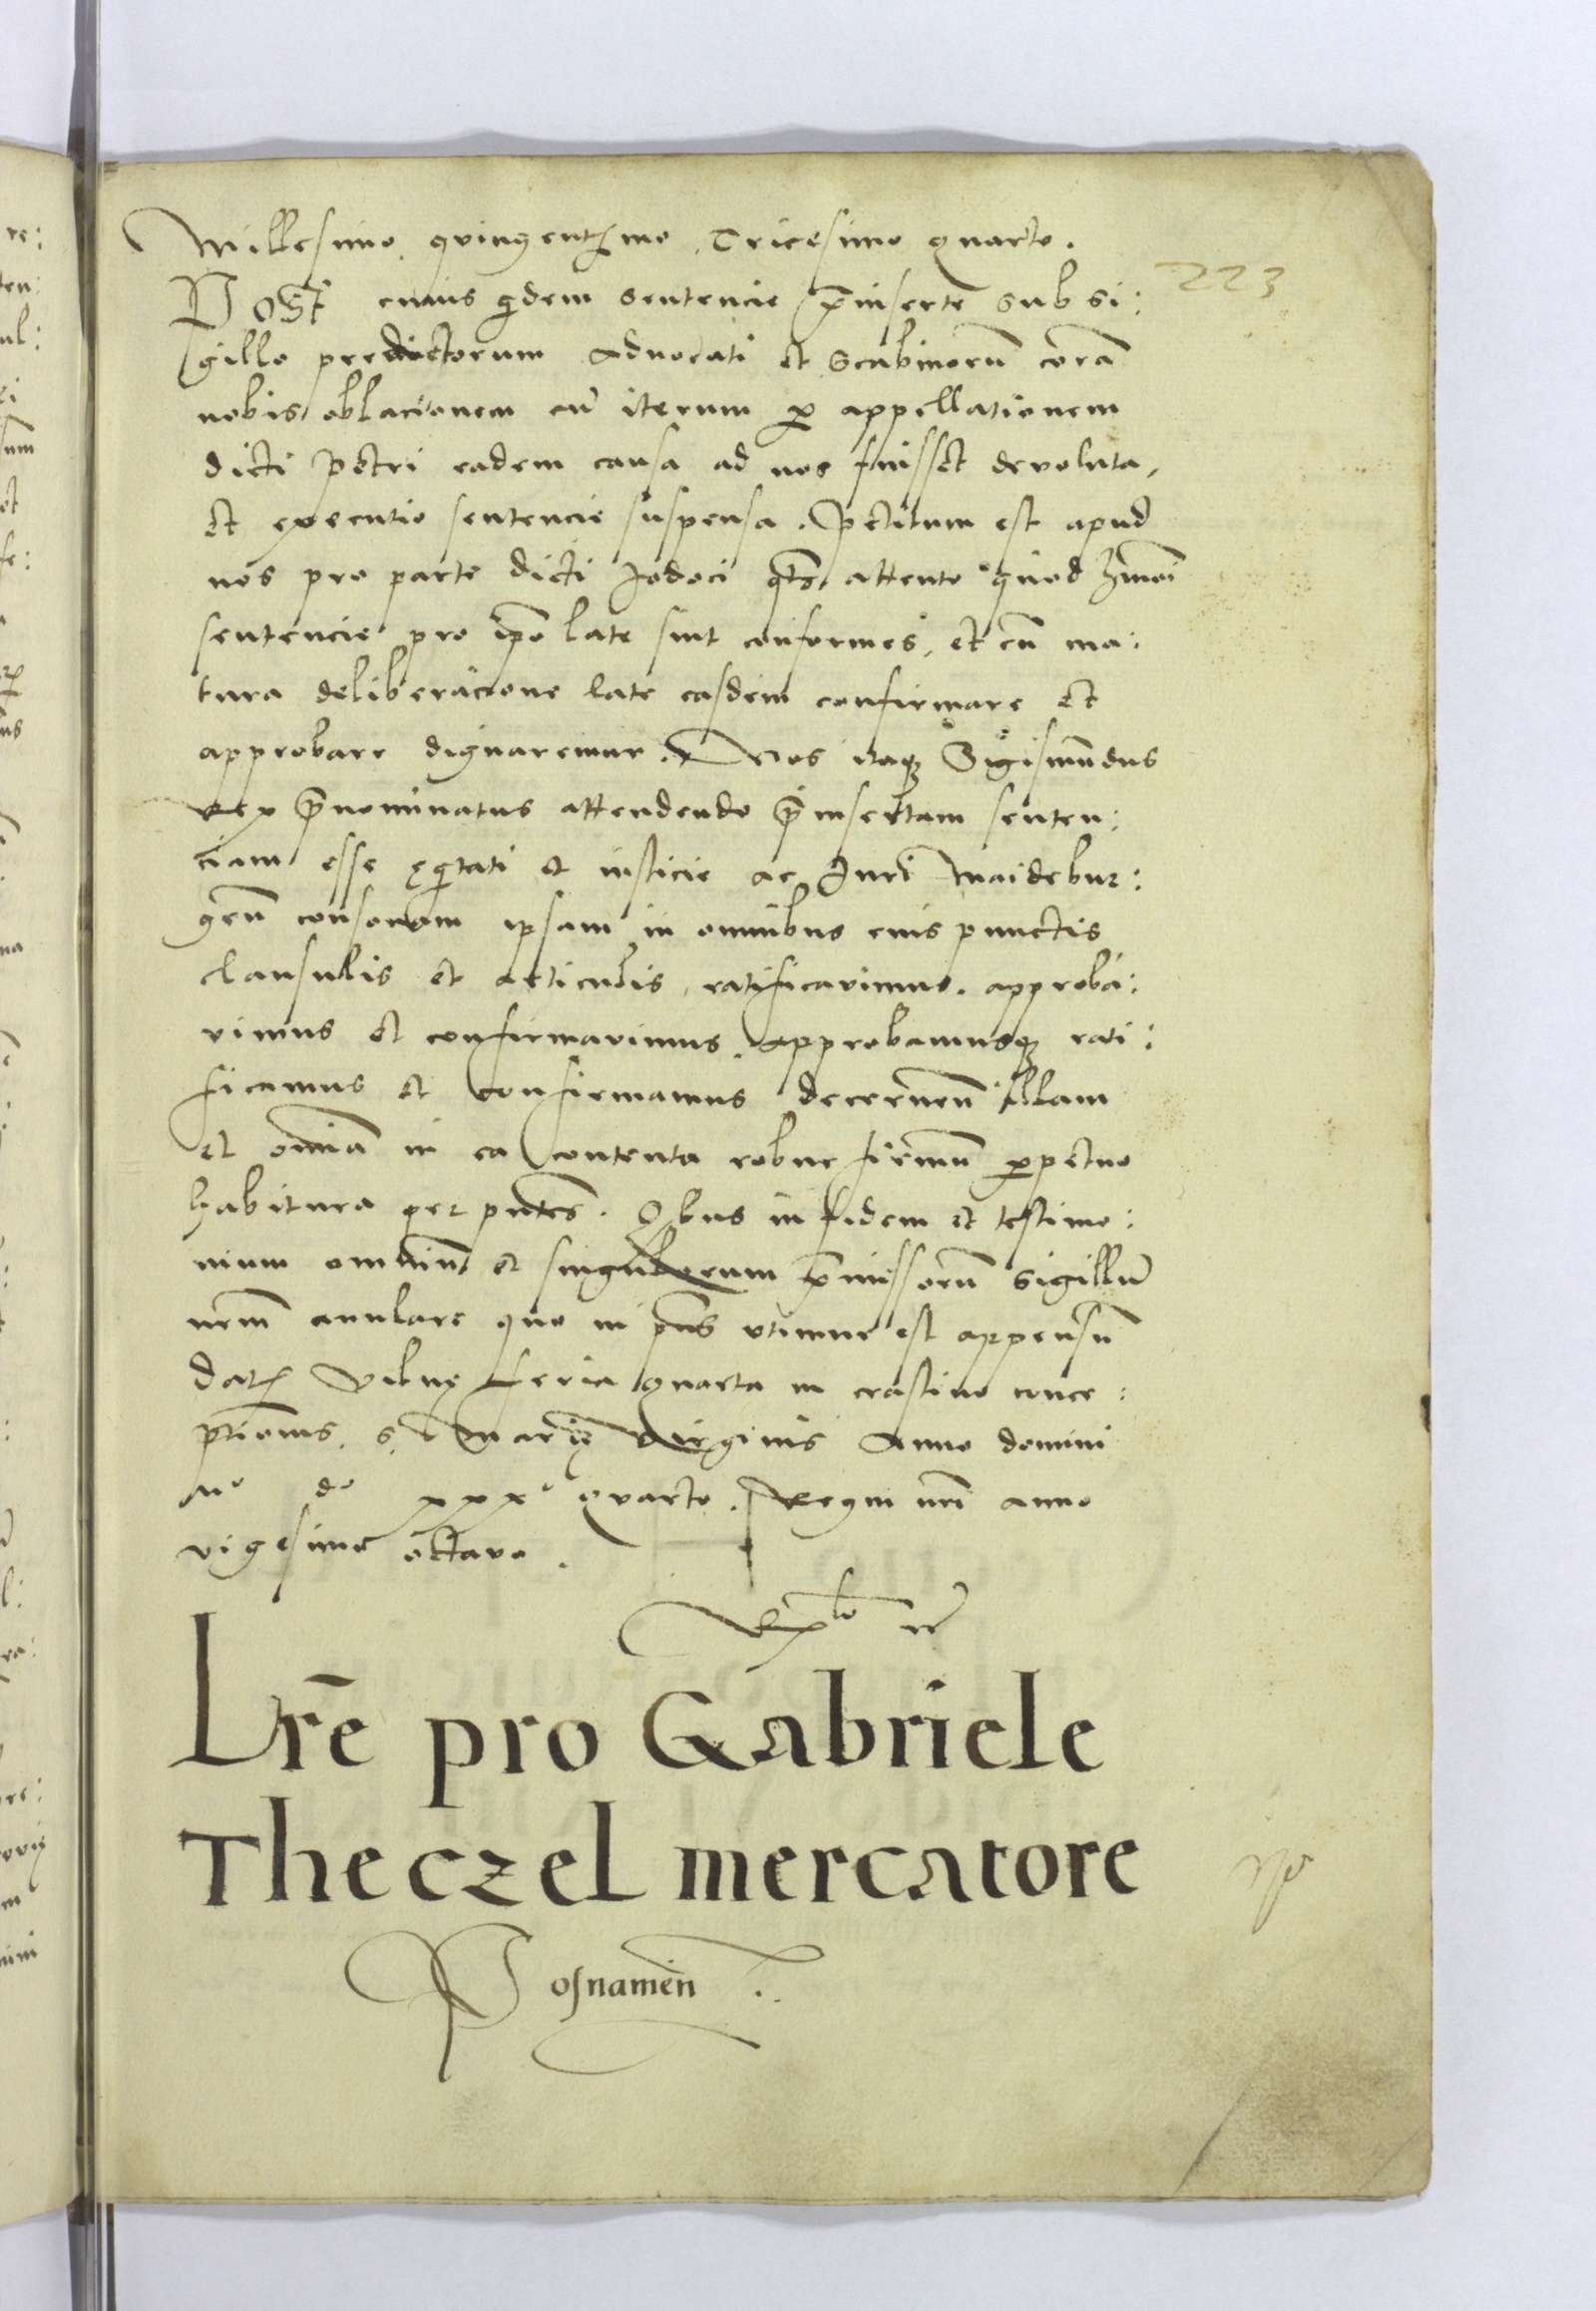 Millesimo quingentimo Tricesimo quarto.
223
Post cuius qdem sentencie p̄inserte sub si:
gillo predictorum aduocati et Scabinorū corā
nobis oblacionem cū iterum ꝑ appellationem
dicti Petri eadem causa ad nos fuisset deuoluta,
et executio sentencie suspensa. Petitum est apud
nos pro parte dicti Jodoci qts attento quod hmoi
sentencie pro ipo late sint conformes, et cū ma:
tura deliberacione late easdem confirmare et
approbare dignaremur. Nos itaqꝫ Sigismūdus
Rex p̄nominatus attendendo p̄insertam senten:
ciam esse ęqtati et iusticie ac Juri Maidebur:
geñ consonam ipsam in omnibus eius punctis
clausulis et articulis ratificauimus. approba:
vimus et confirmauimus. approbamusqꝫ rati:
ficamus et confirmamus decerneñ illam
et omnia in ea contenta robur firmū ꝑpetuo
habitura per pn̄tes. Qbus in fidem et testimo:
nium omniū et singulorum p̄missorū sigillū
nrm̄ anulare quo in pn̄s vtimur est appensū
dat Vilnę feria quarta in crastino conce:
ptionis. s. Marię Virginis Anno domini
Mo do xxxo quarto. Regni nr̄i anno
vigesimo octauo.
Lr̄e pro Gabriele
Theczel mercatore
Posnamen̄